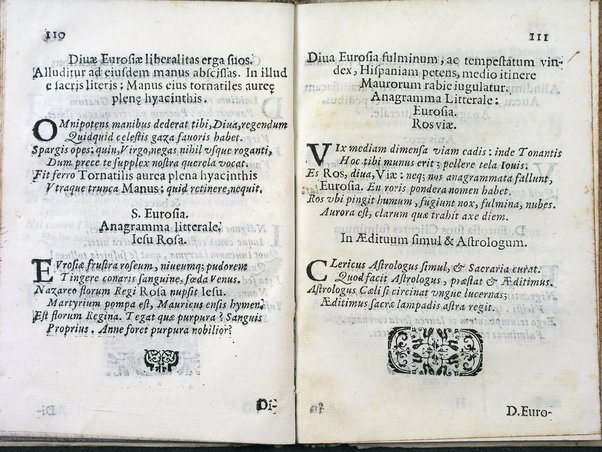 110
Diuæ Eurosiæ liberalitas erga suos.
Alluditur ad eiusdem manus abscissas. In illud
e sacris literis: Manus eius tornatiles aureę
plenę hyacinthis.
OMnipotens manibus dederat tibi, Diua, regendum
Quidquid cęlestis gaza fauoris habet.
Spargis opes; quin, Virgo, negas nihil vsque roganti,
Dum prece te supplex nostra querela vocat.
Fit ferro Tornatilis aurea plena hyacinthis
Vtraque trunca Manus: quid retinere, nequit.
S. Eurosia.
Anagramma litterale.
Iesu Rosa.
EVrosiæ frustra roseum, niueumq; pudorem
Tingere conaris sanguine, fœda Venus.
Nazareo florum Regi Rosa nupsit Iesu.
Martyrium pompa est, Mauricus ensis hymen.
Est florum Regina. Tegat quæ purpura? Sanguis
Proprius. Anne foret purpura nobilior?
Di-
111
Diua Eurosia fulminum, ac tempestatum vin-
dex, Hispaniam petens, medio itinere
Maurorum rabie iugulatur.
Anagramma Litterale:
Eurosia.
Ros viæ.
VIx mediam dimensa viam cadis: inde Tonantis
Hoc tibi munus erit; pellere tela Iouis.
Es Ros, diua, Viæ: neq; nos anagrammata fallunt,
Eurosia. En roris pondera nomen habet.
Ros vbi pingit humum, fugiunt nox, fulmina, nubes.
Aurora est, clarum quæ trahit axe diem.
In Ædituum simul & Astrologum.
CLericus Astrologus simul, & Sacraria curat.
Quod facit Astrologus, præstat & Æditimus.
Astrologus Cæli si circinat vngue lucernas;
Æditimus sacræ lampadis astra regit.
D. Euro-